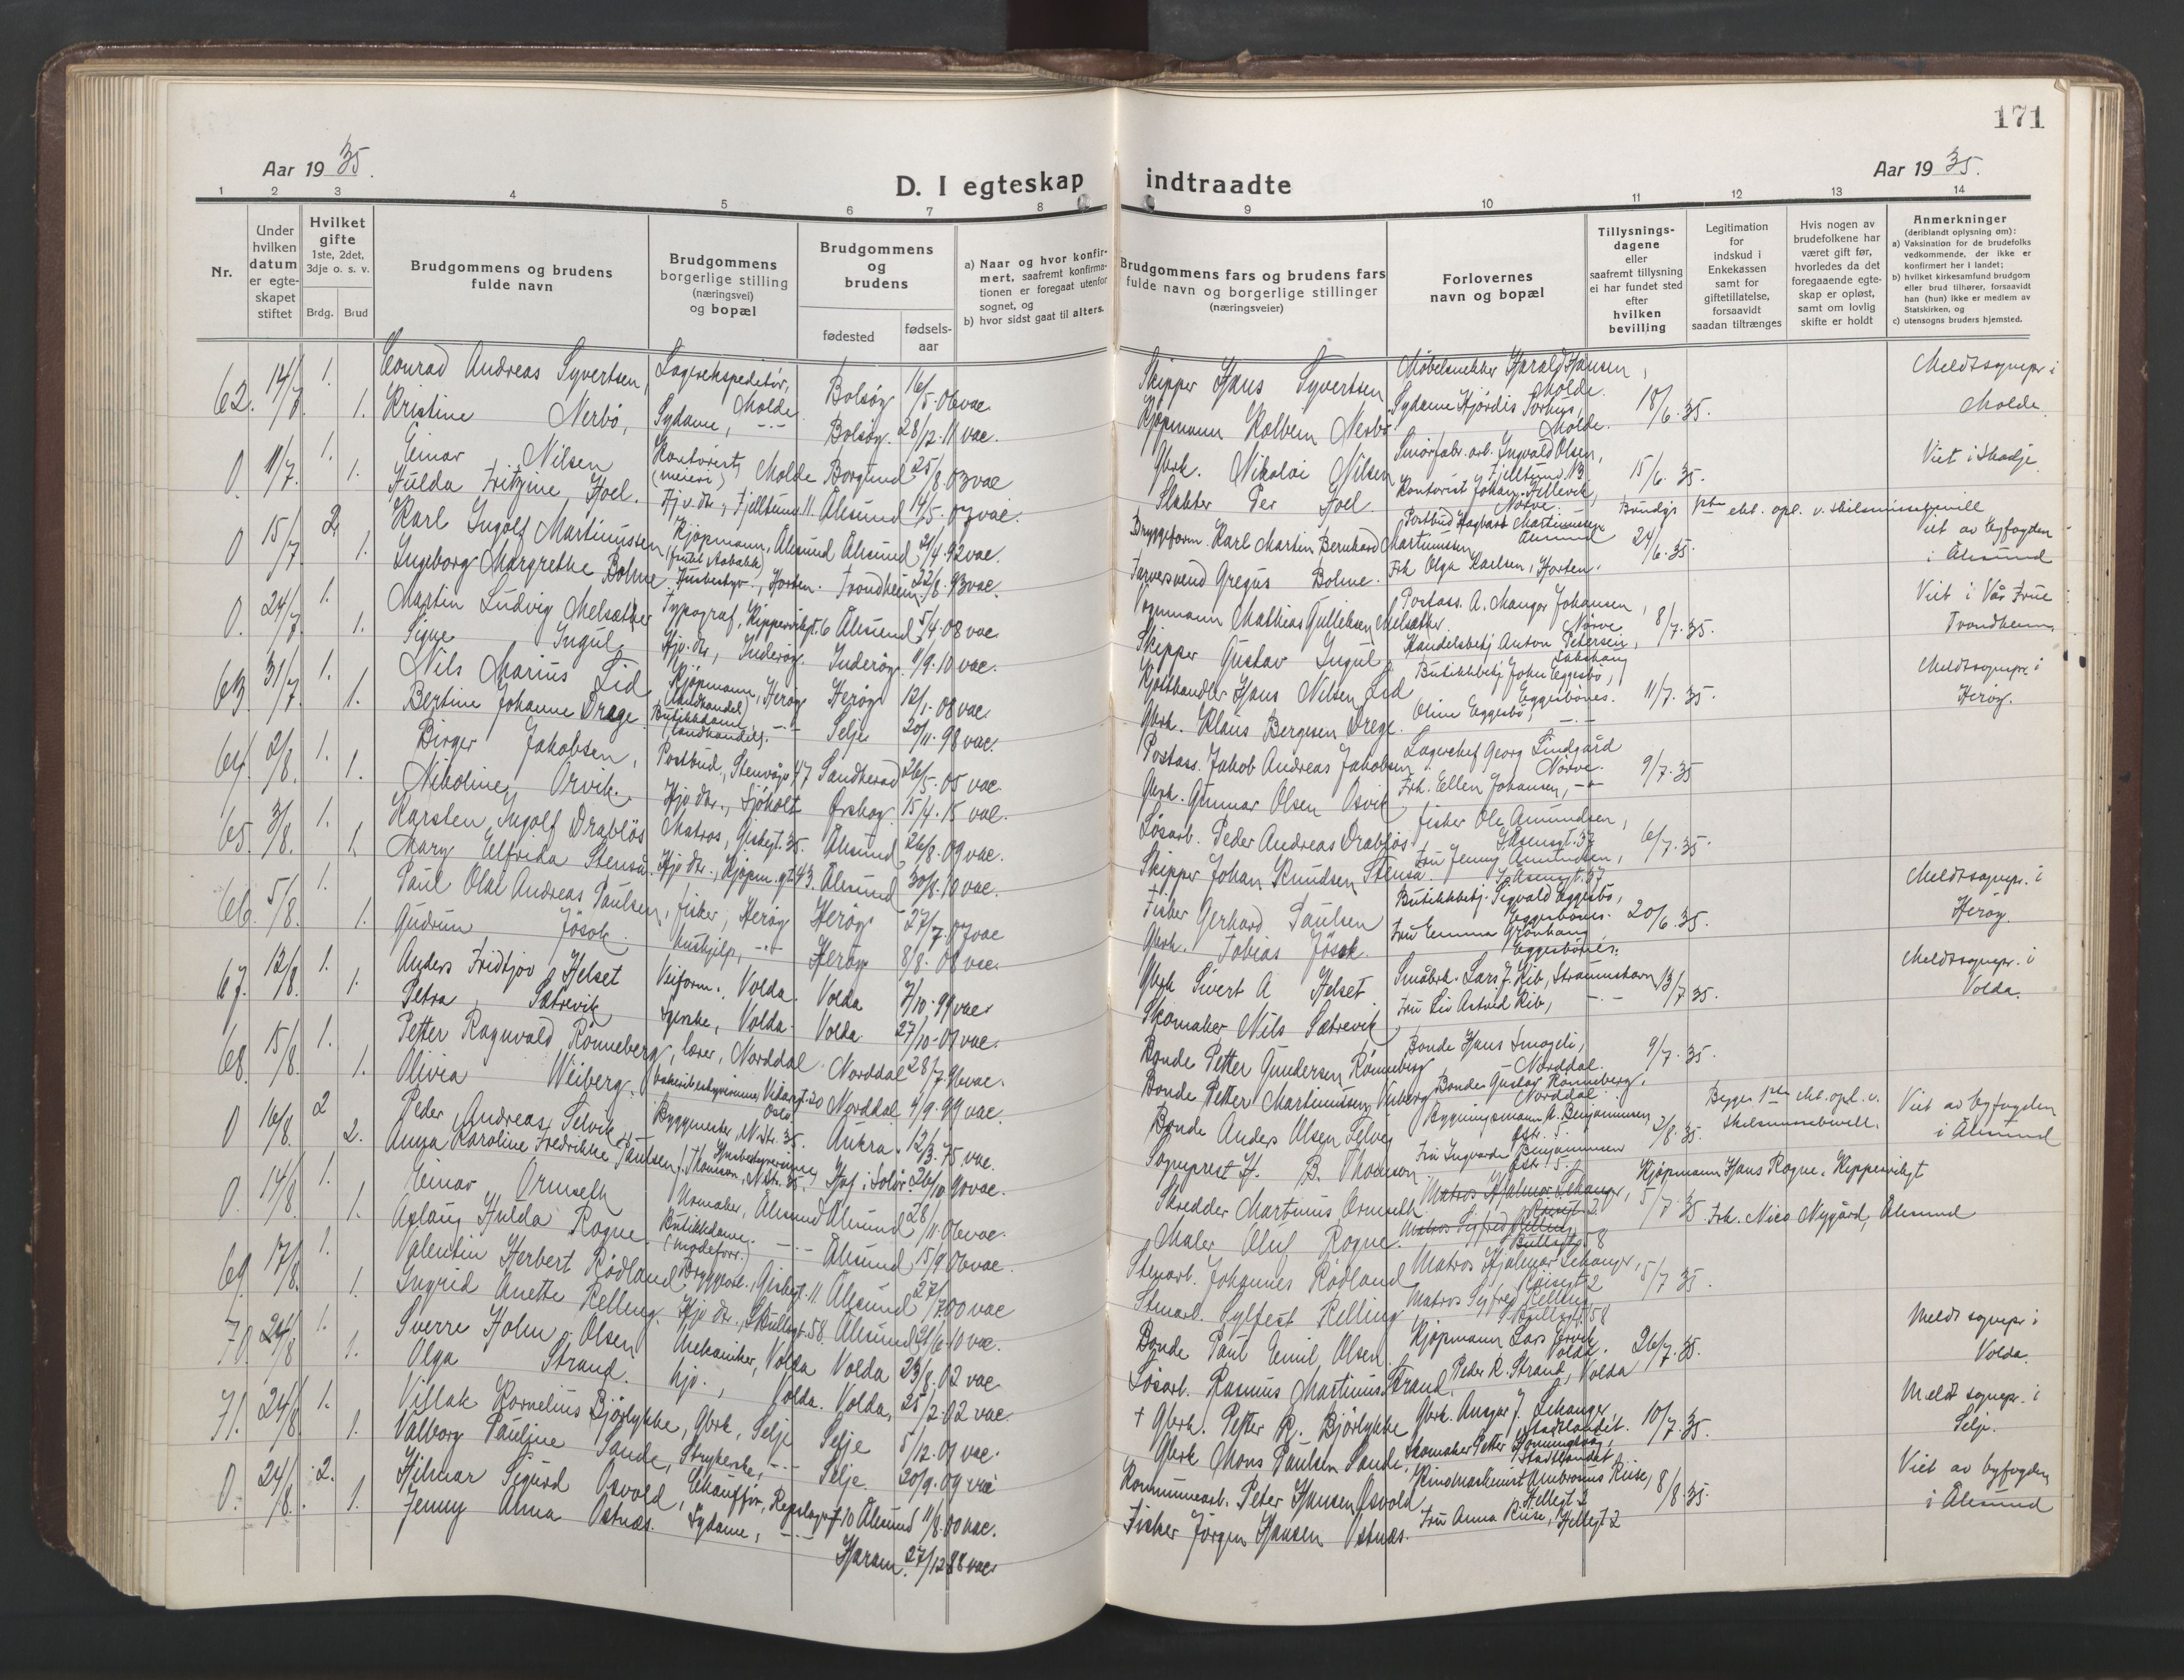 171
Aar 1935.
D. I egteskap indtraadte
Aar 1935.
1 2 3 4 5 6 7 8 9 10 11 12 13 14
Nr.
Under hvilken datum er egteskapet stiftet
Hvilket gifte 1ste, 2det, 3dje o. s. v.
Brdg. Brud
Brudgommens og brudens fulde navn
Brudgommens borgerlige stilling (næringsvei) og bopæl
Brudgommens og brudens
fødested
fødsels-aar
a) Naar og hvor konfirmert, saafremt konfirmationen er foregaat utenfor sognet, og
b) hvor sidst gaat til alters.
Brudgommens fars og brudens fars fulde navn og borgerlige stillinger (næringsveier)
Forlovernes navn og bopæl
Tillysningsdagene eller saafremt tillysning ei har fundet sted efter hvilken bevilling
Legitimation for indskud i Enkekassen samt for giftetillatelse, forsaavidt saadan tiltrænges
Hvis nogen av brudefolkene har været gift før, hvorledes da det foregaaende egteskap er opløst, samt om lovlig skifte er holdt
Anmerkninger (deriblandt oplysning om):
a) Vaksination for de brudefolks vedkommende, der ikke er konfirmert her i landet;
b) hvilket kirkesamfund brudgom eller brud tilhører, forsaavidt han (hun) ikke er medlem av Statskirken, og
c) utensogns bruders hjemsted.
62. 14/7 1. Konrad Andreas Syvertsen, Lagerekspeditør, Molde Bolsøy 16/5-06 vac. Skipper Hans Syvertsen Møbelsnekker Harald Hansen, Molde. 18/6.35. Meldt sognepr. i Molde.
1. Kristine Nerbø, Sydame, -"- Bolsøy. 28/12-11 vac. Kjøpmann Kolbein Nerbø Sydame Hjørdis Molde.
0. 11/7. 1. Einar Nilsen Kontorist, (meieri) Molde Borgund 25/8.03 vac Gbrk. Nikolai Nilsen Smørfabr.arb. Ingvald Olsen, Fjelltunv 13 15/6.35. Viet i Skodje
1. Hulda Fritzine Hoel. Hj.v.dr., Fjelltunv 11. Ålesund 14/5-07 vac. Slakter Per Hoel. Kontorist Johan Hellevik, Nørve
0 15/7 2. Karl Ingolf Martinussen Kjøpmann, Ålesund Ålesund 21/4.92 vac. Bryggeform. Karl Martin Bernhard Martinussen Postbud Hagbart Martinussen Ålesund 24/6.35. Brudgs 1ste ekt. opl. v. skilsmissebevill Viet av byfogden i Ålesund
1. Ingeborg Margrethe Bolme. Husbestyr., Horten. Trondheim. 22/8.93 vac. Farversvend Gregus Bolme. Frk Olga Karlsen, Horten.
0. 24/7 1. Martin Ludvig Melsæther Typograf, Kippervikgt. 6 Ålesund 5/4.08 vac Mathias Gulliksen Melsæther. Postass. A. Manger Johansen, Nørve 8/7.35. Viet i Vår Frue Trondheim.
1. Signe Ingul. Hj.v.dr., Inderøy. Inderøy. 11/9.10 vac. Skipper Gustav Ingul Handelsbetj Anton Petersen,
63. 31/7. 1. Nils Marius Lid Kjøpmann, (landhandel) Herøy Herøy 12/1-08 vac. Kjøtthandler Hans Nilsen Lid Butikkbetj John Eggesbø, Eggesbønes. 11/7.35. Meldt sognepr. i Herøy.
1. Bertine Johanne Drage. Butikkdame (landhandel). -"- Selje 20/11.98 vac. Gbrk. Klaus Bergesen Drege. Oline Eggesbø, -"-
64. 2/8. 1. Birger Jakobsen, Postbud, Stenvåg 47 Sandherad 26/5-05 vac. Postass. Jakob Andreas Jakobsen Lagerchef Georg Lindgård Nørve. 9/7.35
1. Nikoline Orvik. Hjv.dr., Sjøholt Ørskog. 15/4.15 vac. Gbrk. Gunnar Olsen Osvik Frk. Ellen Johansen, -"-
65. 3/8. 1. Karsten Ingolf Drabløs Matros, Giskegt. 35. Ålesund 26/8.09 vac. Løsarb. Peder Andreas Drabløs. Fisker Ole Amundsen, 6/7.35.
1. Mary Elfrida Stenså. Hjv dr., Kjøpm.gt. 43. Ålesund 30/8.10 vac. Skipper Johan Knudsen Stenså. Fru Jenny Amundsen,
66. 5/8. 1. Paul Olai Andreas Paulsen, fisker, Herøy Herøy 27/7.07 vac Fisker Gerhard Paulsen Butikkbetj. Sigvald Eggesbø, Eggesbønes. 20/6.35. Meldt sognepr. i Herøy.
1. Gudrun Jøsok. Hushjelp, -"- Herøy 8/8.08 vac. Gbrk. Tobias Jøsok. Fru Emma Grønhaug Eggesbønes.
67. 12/8. 1. Anders Fridtjov Helset Veiform., Volda. Volda 7/10-99 vac. Gbrk Sivert A. Helset. Småbrk. Lars J. Kib, Straumshavn 13/7.35. Meldt sognepr. i Volda.
1. Petra Sætrevik Syerske, Volda. Volda 27/10-01 vac. Skomaker Nils Sætrevik Fru Liv Astrid Kib, -"-
68. 15/8. 1. Petter Ragnvald Rønneberg, lærer, Norddal. Norddal 28/7.96 vac. Bonde Petter Gundersen Rønneberg Bonde Hans Smogeli, Norddal. 9/7.35.
1. Olivia Weiberg. Oslo Norddal. 4/9.99 vac. Bonde Petter Martinussen Viberg Bonde Gustav Rønneberg, Norddal.
0 16/8. 2 Peder Andreas Selvik, Byggmester, N.str. 35. Aukra. 12/3.75 vac. Bonde Anders Olsen Selvig Bygningsmann A. Benjaminsen, 2/8.35. Begges 1ste ekt. opl. v. skilsmissebevill. Viet av byfogden i Ålesund
2. Anna Karoline Fredrikke Paulsen f. Thomson, Husbestyrerinne N.str. 35. Hof i Solør. 26/10 90 vac. Sogneprest H. B. Thomson. Fru Ingvarda Benjaminsen
0. 14/8. 1. Einar Ormseth Urmaker, Ålesund Ålesund 28/11.06 vac. Skredder Martinus Ormseth. Matros Hjalmar Lehanger, 5/7.35 Kjøpmann Hans Rogne, Kippervikgt
1. Aslaug Hulda Rogne. Butikkdame. (modeforr.) -"- Ålesund 15/9 06 vac. Maler Oluf Rogne. Matros Sigfred Relling, Frk. Nico Nygård, Ålesund
69. 17/8. 1. Valentin Herbert Rødland Bryggearb., Giskegt. 11. Ålesund 27/7.00 vac Stenarb. Johannes Rødland Matros Hjalmar Lehanger, 5/7 35.
1. Ingrid Anette Relling. Hjv dr., Skullegt. 58. Ålesund 21/6.10 vac. Stenarb. Sylfest Relling Matros Sigfred Relling
70. 24/8 1. Sverre Holm Olsen Mekaniker, Volda Volda 23/8.02 vac Bonde Paul Emil Olsen. Kjøpmann Lars Ervik Volda. 26/7.35. Meldt sognepr i Volda.
1. Olga Strand. hjv., Volda. Volda. 25/2.02 vac. Løsarb. Rasmus Martinus Strand. Peder R. Strand, Volda
71. 24/8. 1. Villak Kornelius Bjørlykke, Gbrk, Selje Selje 5/12.09 vac. + Gbrk. Petter R. Bjørlykke Gbrk. Ansgar J. Lehanger, Stadtlandet. 10/7.35. Meldt sognepr. i Selje.
1. Valborg Pauline Sande, Strykerske, -"- Selje 20/9.09 vac Gbrk Mons Paulsen Sande, Skomaker Petter Honningsvåg, Stadtlandet
0. 24/8. 2. Hilmar Sigurd Osvold, Chauffør, Repslagergt 10 Ålesund 11/8.00 vac. Kommunearb. Peter Hansen Osvold Kinomaskinist Ambrosius Riise, Hellegt. 2 8/8.35. Viet av byfogden i Ålesund
1. Jenny Anna Ostnæs. Sydame, -"- Haram. 27/12 88 vac. Fisker Jørgen Hansen Ostnæs. Fru Anna Riise, Hellegt 2